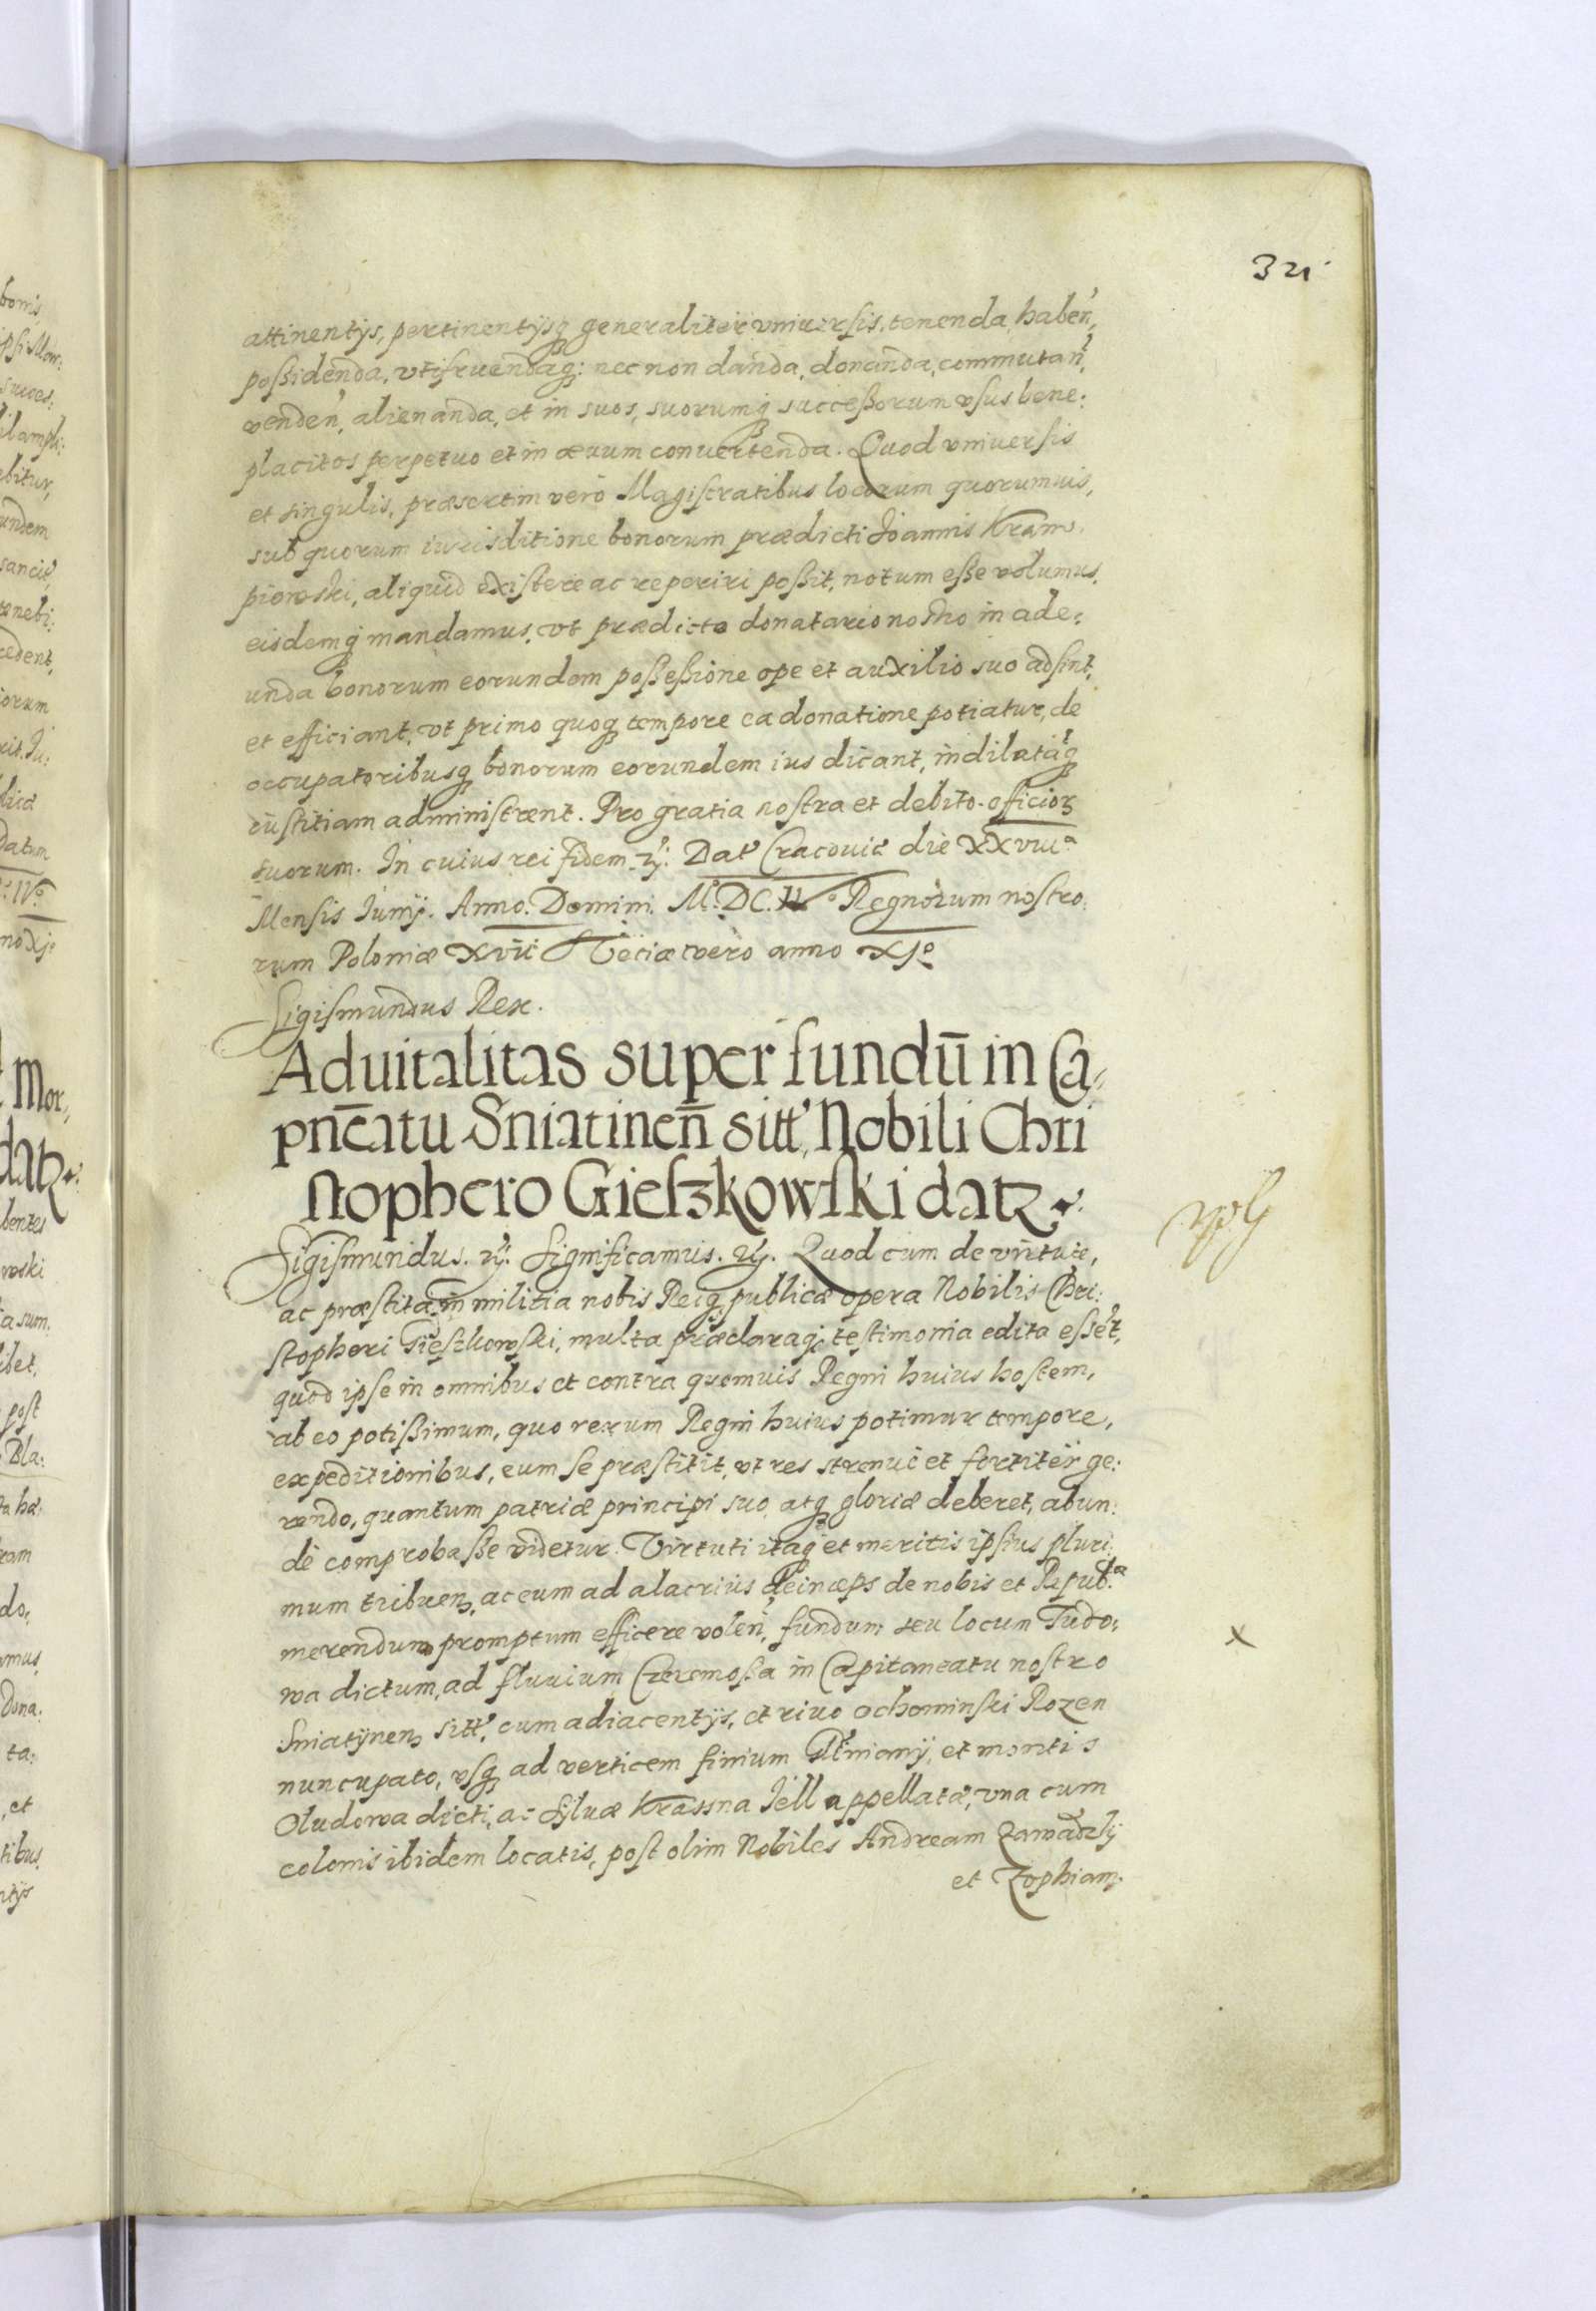 321
attinentijs, pertinentijsq́ꝫ generaliter vniuersis, tenenda, haben̄,
poßidenda, vtifruendaq́ꝫ: nec non danda, donanda, commutan̄,
venden̄, alienanda, et in suos, suorumq́ꝫ succeßorum vsus bene:
placitos perpetuo et in æuum conuertenda. Quod vniuersis
et singulis, præsertim verò Magistratibus locorum quorumuis,
sub quorum iurisditione bonorum prædicti Joannis Kram:
piowski, aliquid existere ac reperiri poßit, notum eße volumus,
eisdemq́ꝫ mandamus, vt prædicto donatario nostro in ade:
unda bonorum eorundem poßeßione ope et auxilio suo adsint,
et efficiant, vt primo quoqꝫ tempore ea donatione potiatur, de
occupatoribusqꝫ bonorum eorundem ius dicant, indilatáqꝫ
iustitiam administrent. Pro gratia nostra et debito officioꝝ
suorum. In cuius rei fidem ꝛc̃: Dat' Cracouiæ die XXVIIIa
Mensis Iunij. Anno. Domini. Mo. DC. IVo Regnorum nostro:
rum Poloniæ XVII Sueciæ vero anno XJo
Sigismundus Rex.
Aduitalitas super fundū in Ca,
pn̄eatu Sniatinen̄ sitt', Nobili Chri
stophero Gieszkowski datꝫ
Sigismundus. ꝛc̃: Significamus. ꝛc̃. Quod cum de virtute,
ac præstita in militia nobis Reiqꝫ publicæ opera Nobilis Chri:
stopheri Gieszkowski, multa præclaraqꝫ testimonia edita eßet,
quod ipse in omnibus et contra quemuis Regni huius hostem,
ab eo potißimum, quo rerum Regni huius potimur tempore,
expeditionibus, eum se præstitit, vt res strenuè et fortiter ge:
rendo, quantum patriæ principi suo, atqꝫ gloriæ deberet, abun:
dè comprobaße videtur. Virtuti itaqꝫ et meritis ipsius pluri:
mum tribuenꝫ, ac eum ad alacrius deinceps de nobis et Repub.ca
merendum promptum efficere volen̄, fundum seu locum Tudo:
wa dictum, ad fluuium Czeremoßa in Capitaneatu nostro
Sniatÿnenꝫ sitt', cum adiacentijs, et riuo ochominski Rozen
nuncupato, vsqꝫ ad verticem finium et montis
Oludowa dicti, ac syluæ Krassna Iell appellatæ, vna cum
colonis ibidem locatis, post olim Nobiles Andream Zawadzky
et Zophiam.
x